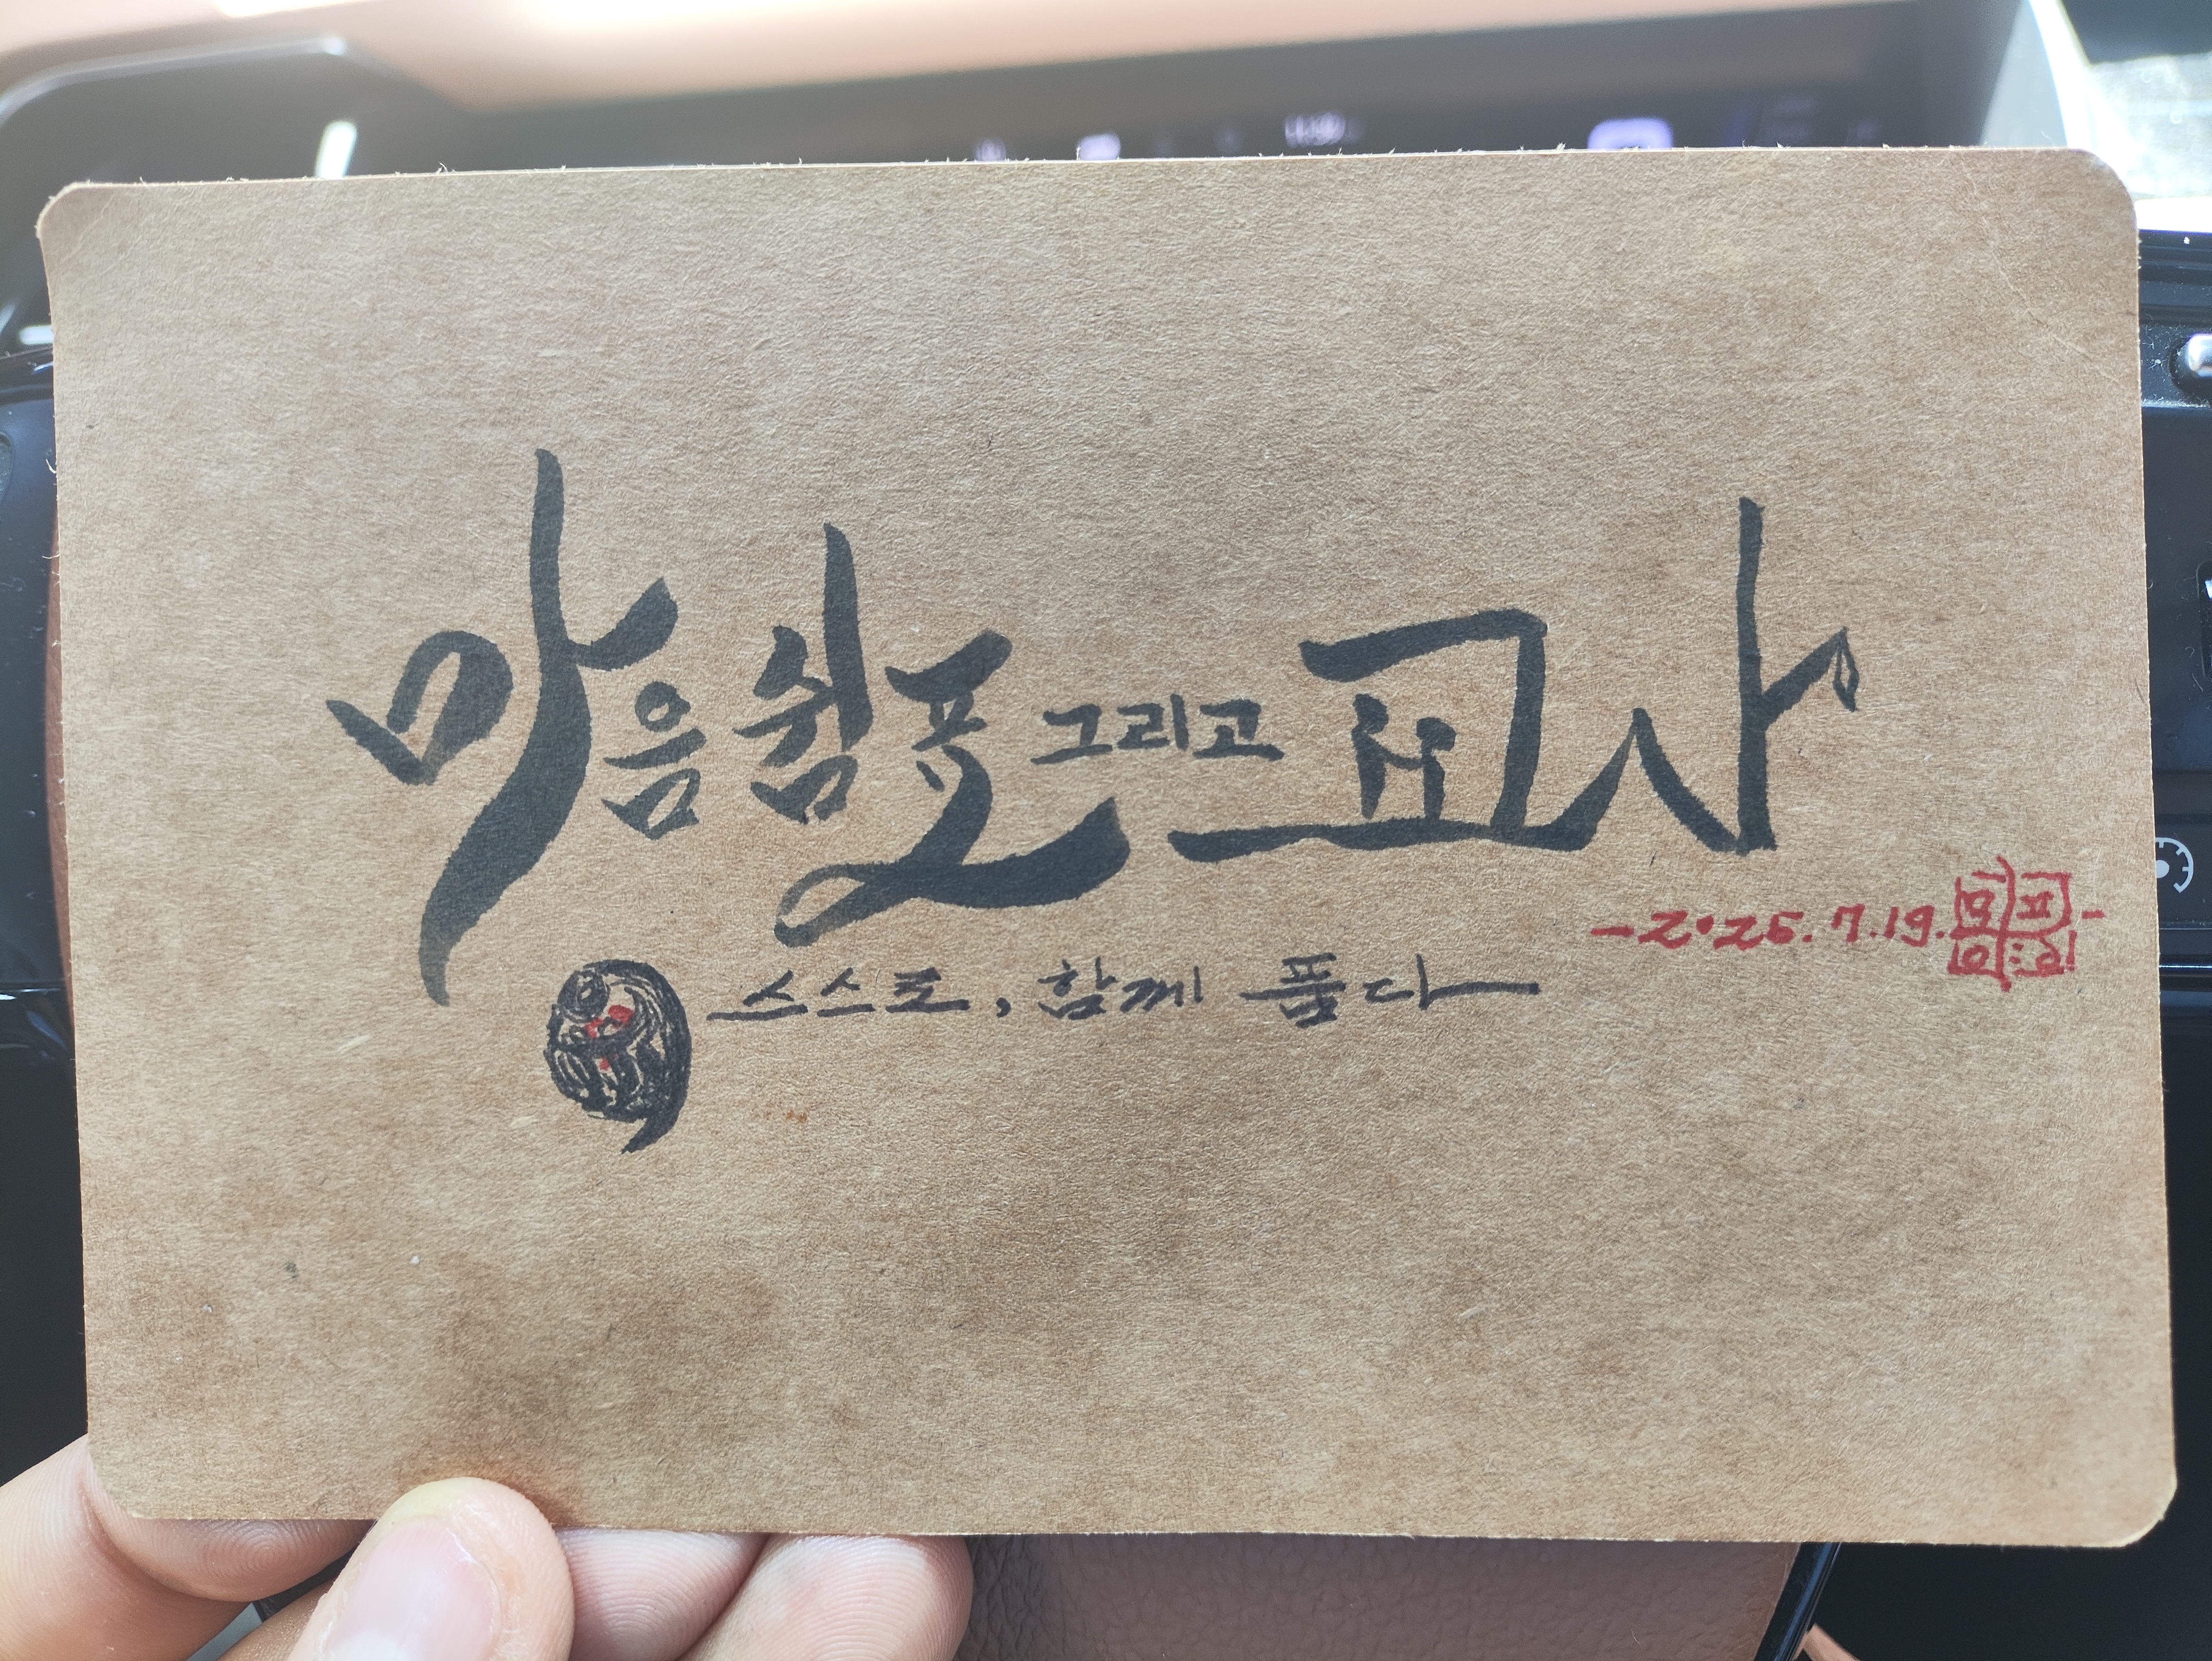 마음쉼표 그리고 교사
-2025.7.19.
스스로, 함께 품다